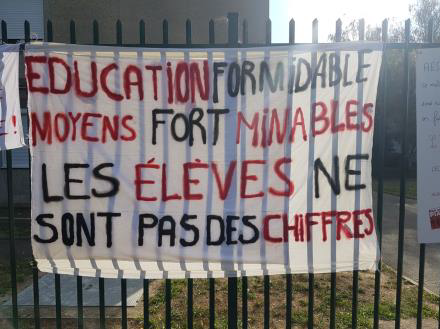 EDUCATION FORMIDABLE
MOYENS FORT MINABLES
LES ÉLÈVES NE
SONT PAS DES CHIFFRES